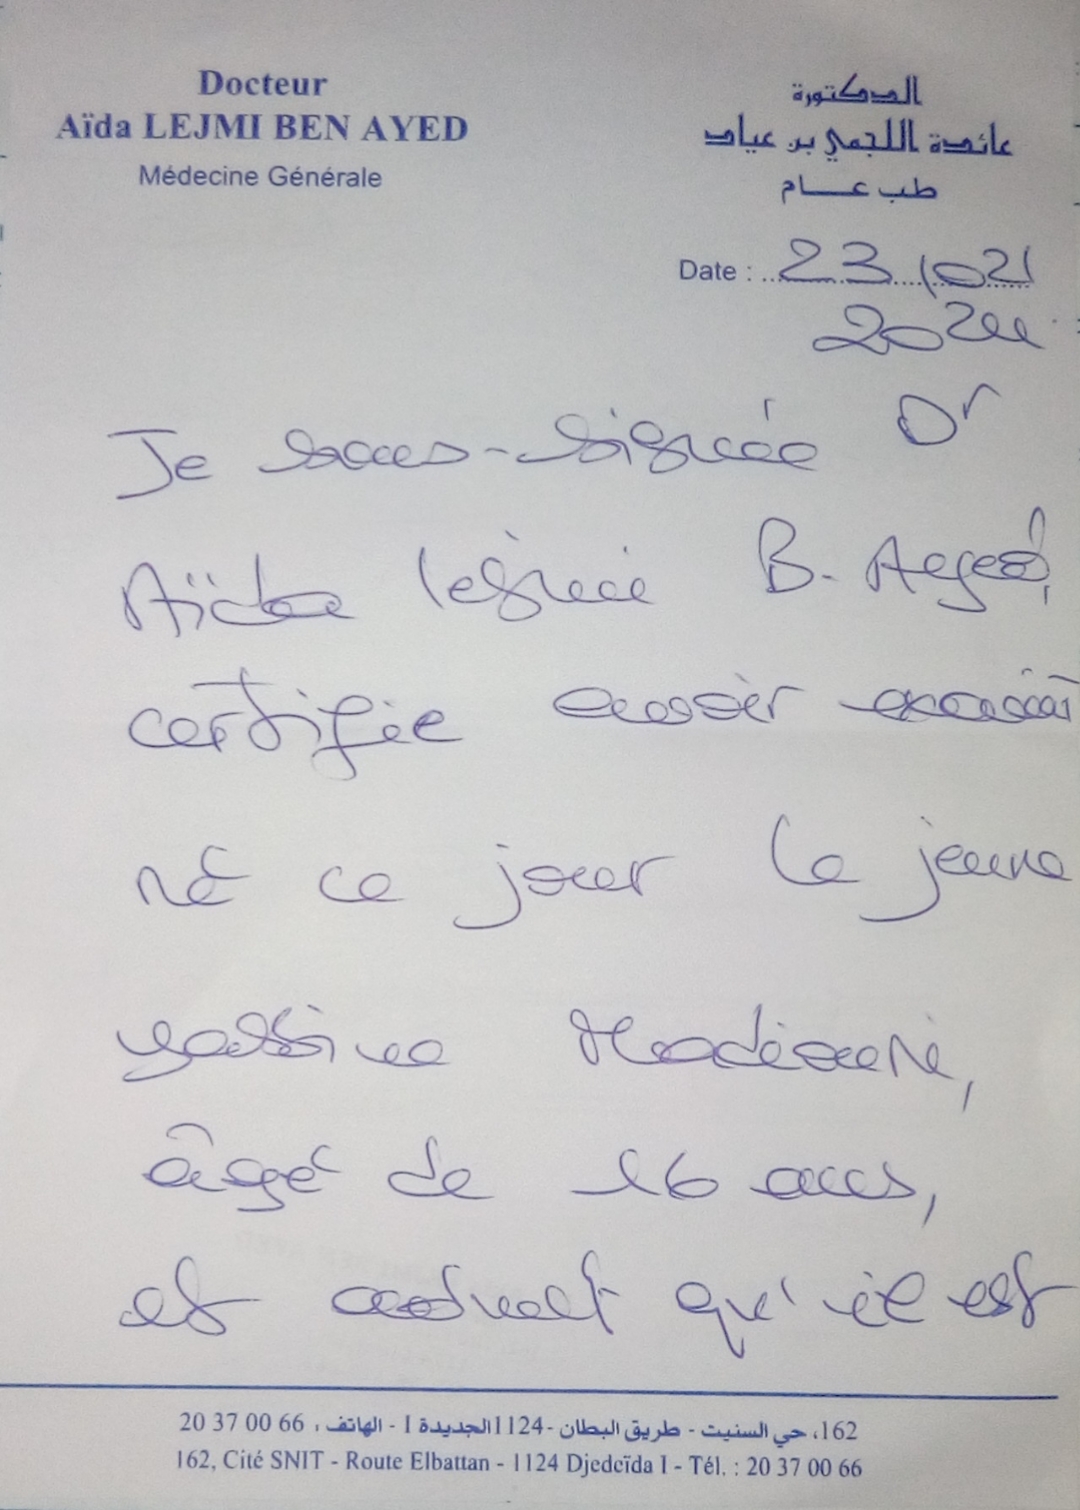 Docteur
Aïda LEJMI BEN AYED
Médecine Générale
الدكتورة
عائدة اللجمي بن عياد
طب عام
Date : 23/02/
2024
Je sous-signée Dr
Aïda lejmi B. Ayed,
certifie avoir exami
né ce jour le jeune
yassine Hadiouni,
âgé de 16 ans,
et qu'il est
162، حي السنيت - طريق البطان -1124 الجديدة I - الهاتف ، 66 00 37 20
162, Cité SNIT - Route Elbattan - 1124 Djedcïda I - Tél. : 20 37 00 66